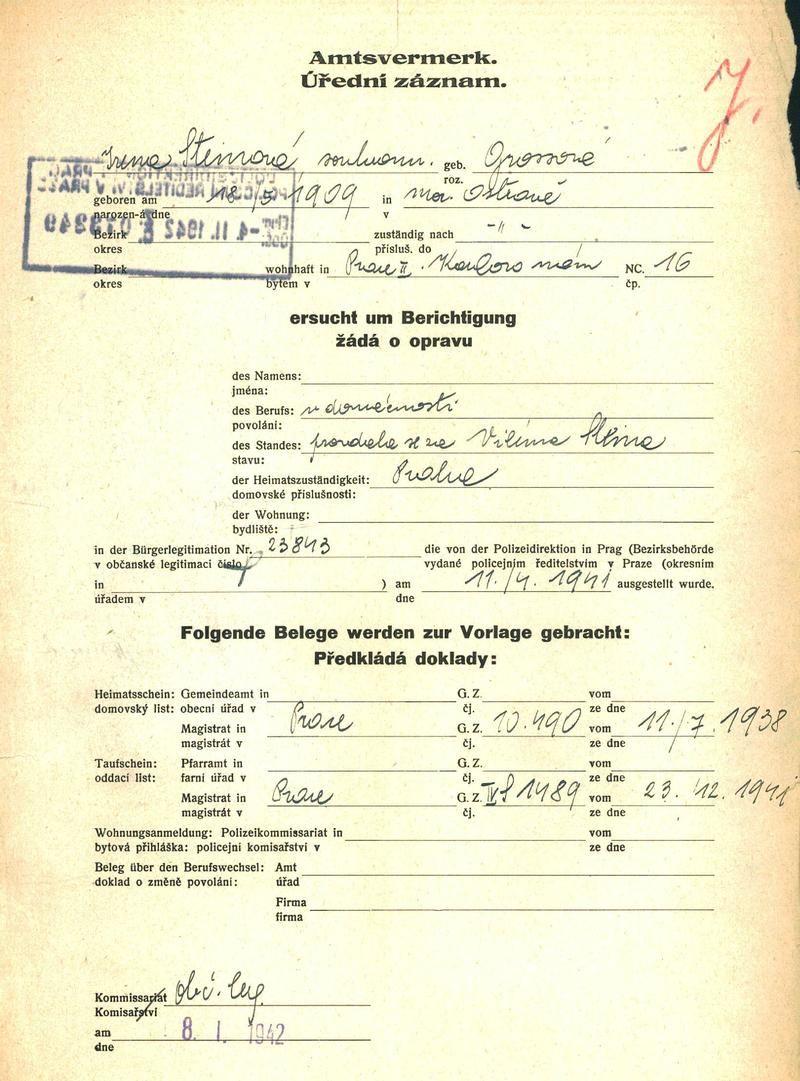 Amtsvermerk.
Úřední záznam.
J.
Irena Steinová geb. Grossová
roz.
geboren am 18/5 1909 in mor. Ostravě
narozen-á dne v
Bezirk zuständig nach -"-
okres přísluš. do
Bezirk wohnhaft in Praze II. Karlovo nám NC. 16
okres bytem v čp.
-4. II. 1942 E 079349
ersucht um Berichtigung
žádá o opravu
des Namens:
jména:
des Berufs: v domácnosti
povolání:
des Standes: provdala se za Viléma Steina
stavu:
der Heimatszuständigkeit: Praha
domovské příslušnosti:
der Wohnung:
bydliště:
in der Bürgerlegitimation Nr. 23843 die von der Polizeidirektion in Prag (Bezirksbehörde
v občanské legitimaci číslo vydané policejním ředitelstvím v Praze (okresním
in ) am 11./4. 1941 ausgestellt wurde.
úřadem v dne
Folgende Belege werden zur Vorlage gebracht:
Předkládá doklady:
Heimatsschein: Gemeindeamt in G. Z. vom
domovský list: obecní úřad v čj. ze dne
Magistrat in Praze G. Z. 10.490 vom 11./7. 1938
magistrát v čj. ze dne
Taufschein: Pfarramt in G. Z. vom
oddací list: farní úřad v čj. ze dne
Magistrat in Praze G. Z. 1489 vom 23. 12. 1941
magistrát v čj. ze dne
Wohnungsanmeldung: Polizeikommissariat in vom
bytová přihláška: policejní komisařství v ze dne
Beleg über den Berufswechsel: Amt
doklad o změně povolání: úřad
Firma
firma
Kommissariat obč. leg.
Komisařství
am 8. I. 1942
dne